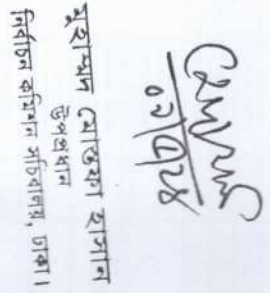 ০২/৭/২৪
মুহাম্মদ মোস্তফা হাসান
উপপ্রধান
নির্বাচন কমিশন সচিবালয়, ঢাকা।